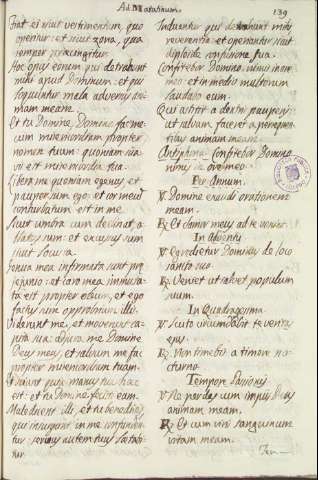 Ad Matutinum.
139
Fiat ei sicut vestimentum, quo
operitur: et sicut zona, qua
semper præcingitur.
Hoc opus eorum, qui detrahunt
mihi apud Dominum: et qui
loquuntur mala adversus ani-
mam meam.
Et tu Domine, Domine fac me-
cum misericordiam propter
nomen tuum: quoniam sua-
vis est misericordia tua.
Libera me quoniam egenus, et
pauper sum ego: et cor meum
conturbatum est in me.
Sicut umbra cum declinat, a-
blatus sum: et excussus sum
sicut locusta.
Genua mea infirmata sunt præ
jejunio: et caro mea immuta-
ta est propter oleum, et ego
factus sum opprobrium illis.
Viderunt me, et moverunt ca-
pita sua: adjuva me Domine
Deus meus, et salvum me fac
propter misericordiam tuam.
Et sciant quia manus tua hæc
est: et tu Domine fecisti eam.
Maledicent illi, et tu benedices,
qui insurgunt in me confundan-
tur: servus autem tuus lætabi-
tur.
Induantur qui detrahunt mihi
reverentia: et operiantur sicut
diploide confusione sua.
Confitebor Domino nimis in ore
meo: et in medio multorum
laudabo eum.
Qui astitit a dextris pauperis,
ut salvam faceret a persequen-
tibus animam meam.
Antiphona: Confitebor Domino
nimis in ore meo.
Per Annum.
V. Domine exaudi orationem
meam.
R. Et clamor meus ad te veniat.
In Adventu
V. Egredietur Dominus de loco
sancto suo.
R. Veniet ut salvet populum
suum.
In Quadragesima.
V. Scuto circumdabit te veritas
ejus.
R. Non timebis a timore no-
cturno.
Tempore Passionis
V. Ne perdas cum impiis Deus
animam meam.
R. Et cum viris sanguinum
vitam meam.